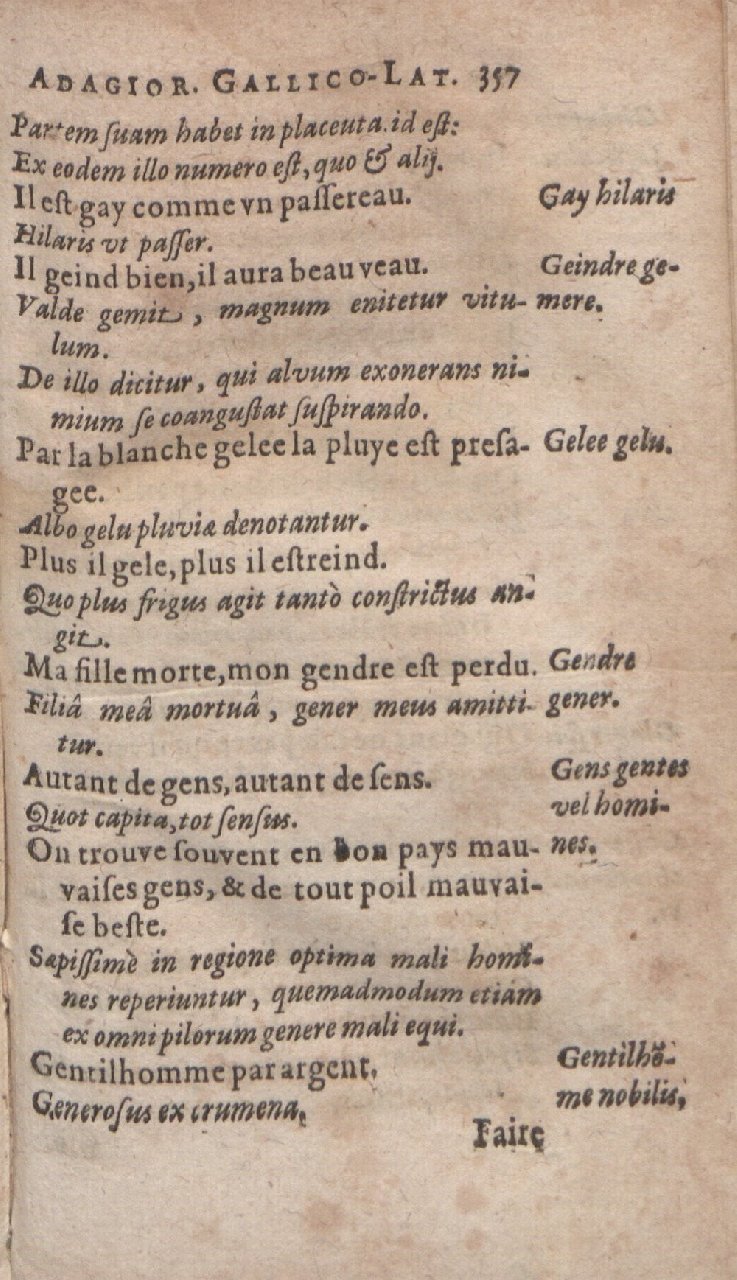 ADAGIOR. GALLICO-LAT. 357
Partem ſuam habet in placeuta. id eſt:
Ex eodem illo numero eſt, quo & alij.
Il eſt gay comme vn paſſereau.
Gay hilaris
Hilaris vt paſſer.
Il geind bien, il aura beau veau.
Geindre ge-
Valde gemit, magnum enitetur vitu-
mere.
lum.
De illo dicitur, qui alvum exonerans ni-
mium ſe coanguſtat ſuſpirando.
Par la blanche gelee la pluye eſt preſa-
Gelee gelu.
gee.
Albo gelu pluviæ denotantur.
Plus il gele, plus il eſtreind.
Quo plus frigus agit tantò conſtrictus an-
git.
Ma fille morte, mon gendre eſt perdu.
Gendre
Filiâ meâ mortuâ, gener meus amitti-
gener.
tur.
Autant de gens, autant de ſens.
Gens gentes
Quot capita, tot ſenſus.
vel homi-
On trouve ſouvent en bon pays mau-
nes.
vaiſes gens, & de tout poil mauvai-
ſe beſte.
Sæpiſſimè in regione optima mali homi-
nes reperiuntur, quemadmodum etiam
ex omni pilorum genere mali equi.
Gentilhomme par argent.
Gentilhō-
Generoſus ex crumena,
me nobilis,
Faire